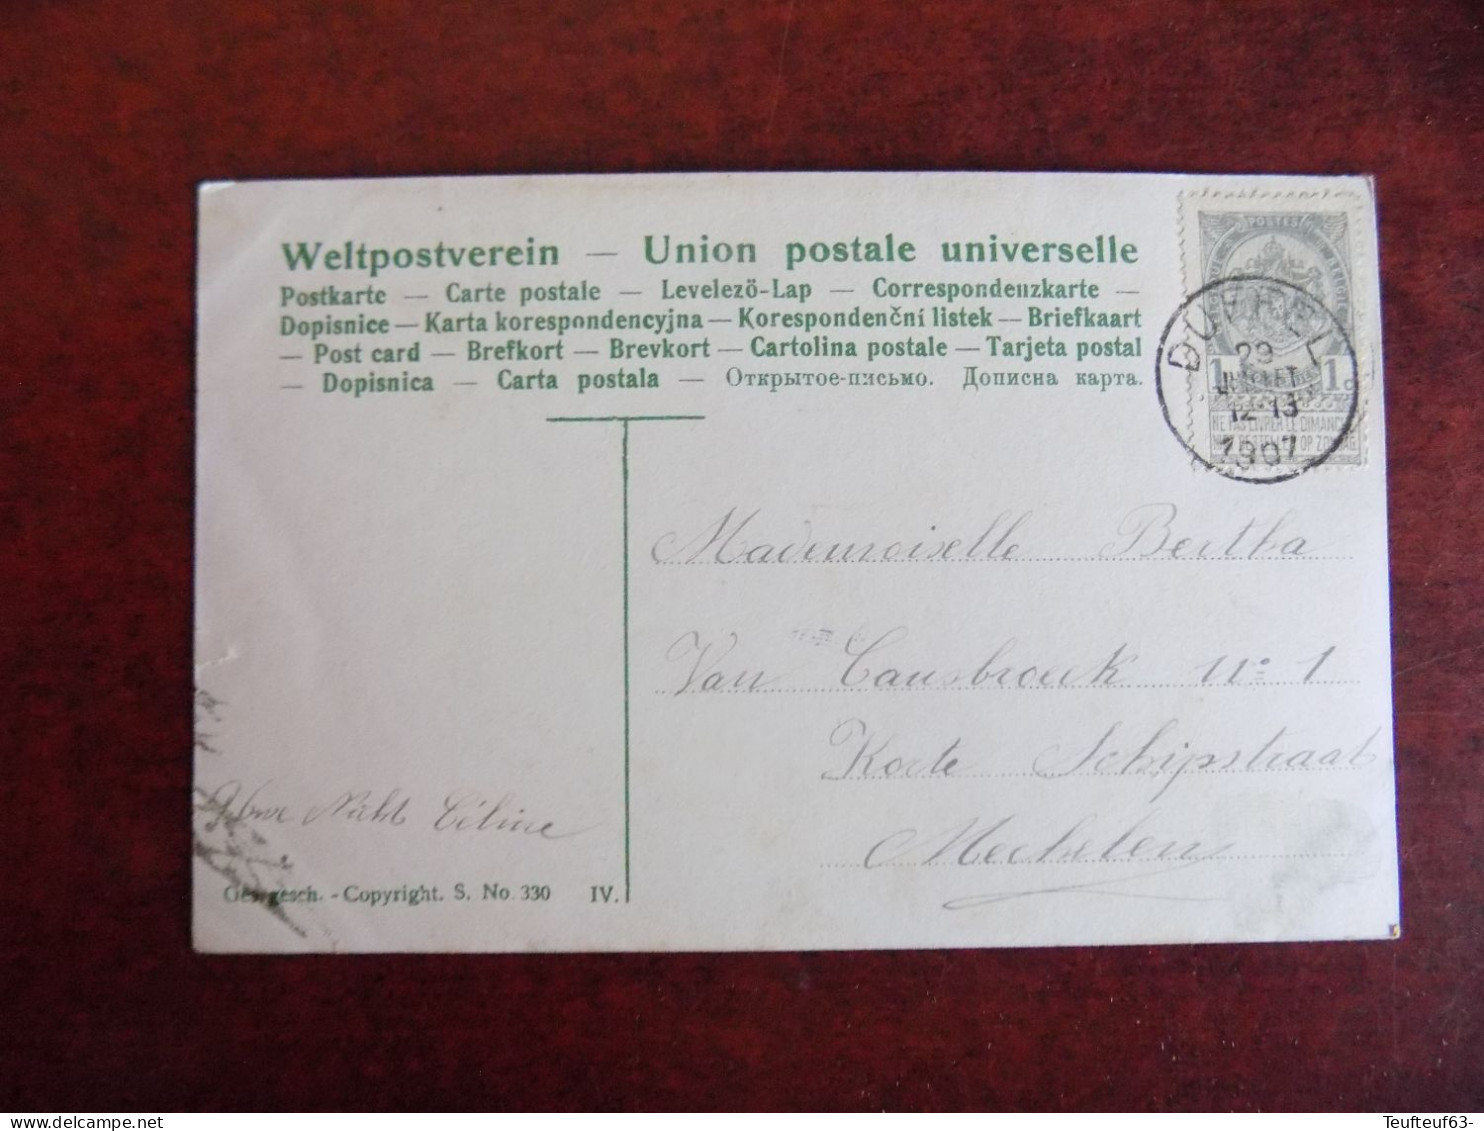 Weltpostverein — Union postale universelle
Postkarte — Carte postale — Levelező-Lap — Correspondenzkarte —
Dopisnice — Karta korespondencyjna — Korespondenční listek — Briefkaart
— Post card — Brefkort — Brevkort — Cartolina postale — Tarjeta postal
— Dopisnica — Carta postala — Открытое-письмо. Дописна карта.
POSTES
1 1
NE PAS LIVRER LE DIMANCHE
DUFFEL
29
JUILLET
12-13
1907
Mademoiselle Bertha
Van Causbroeck nº 1
Korte Schipstraat
Mechelen
Céline
Ges. gesch. - Copyright. S. No. 330 IV.
Teufteuf63-